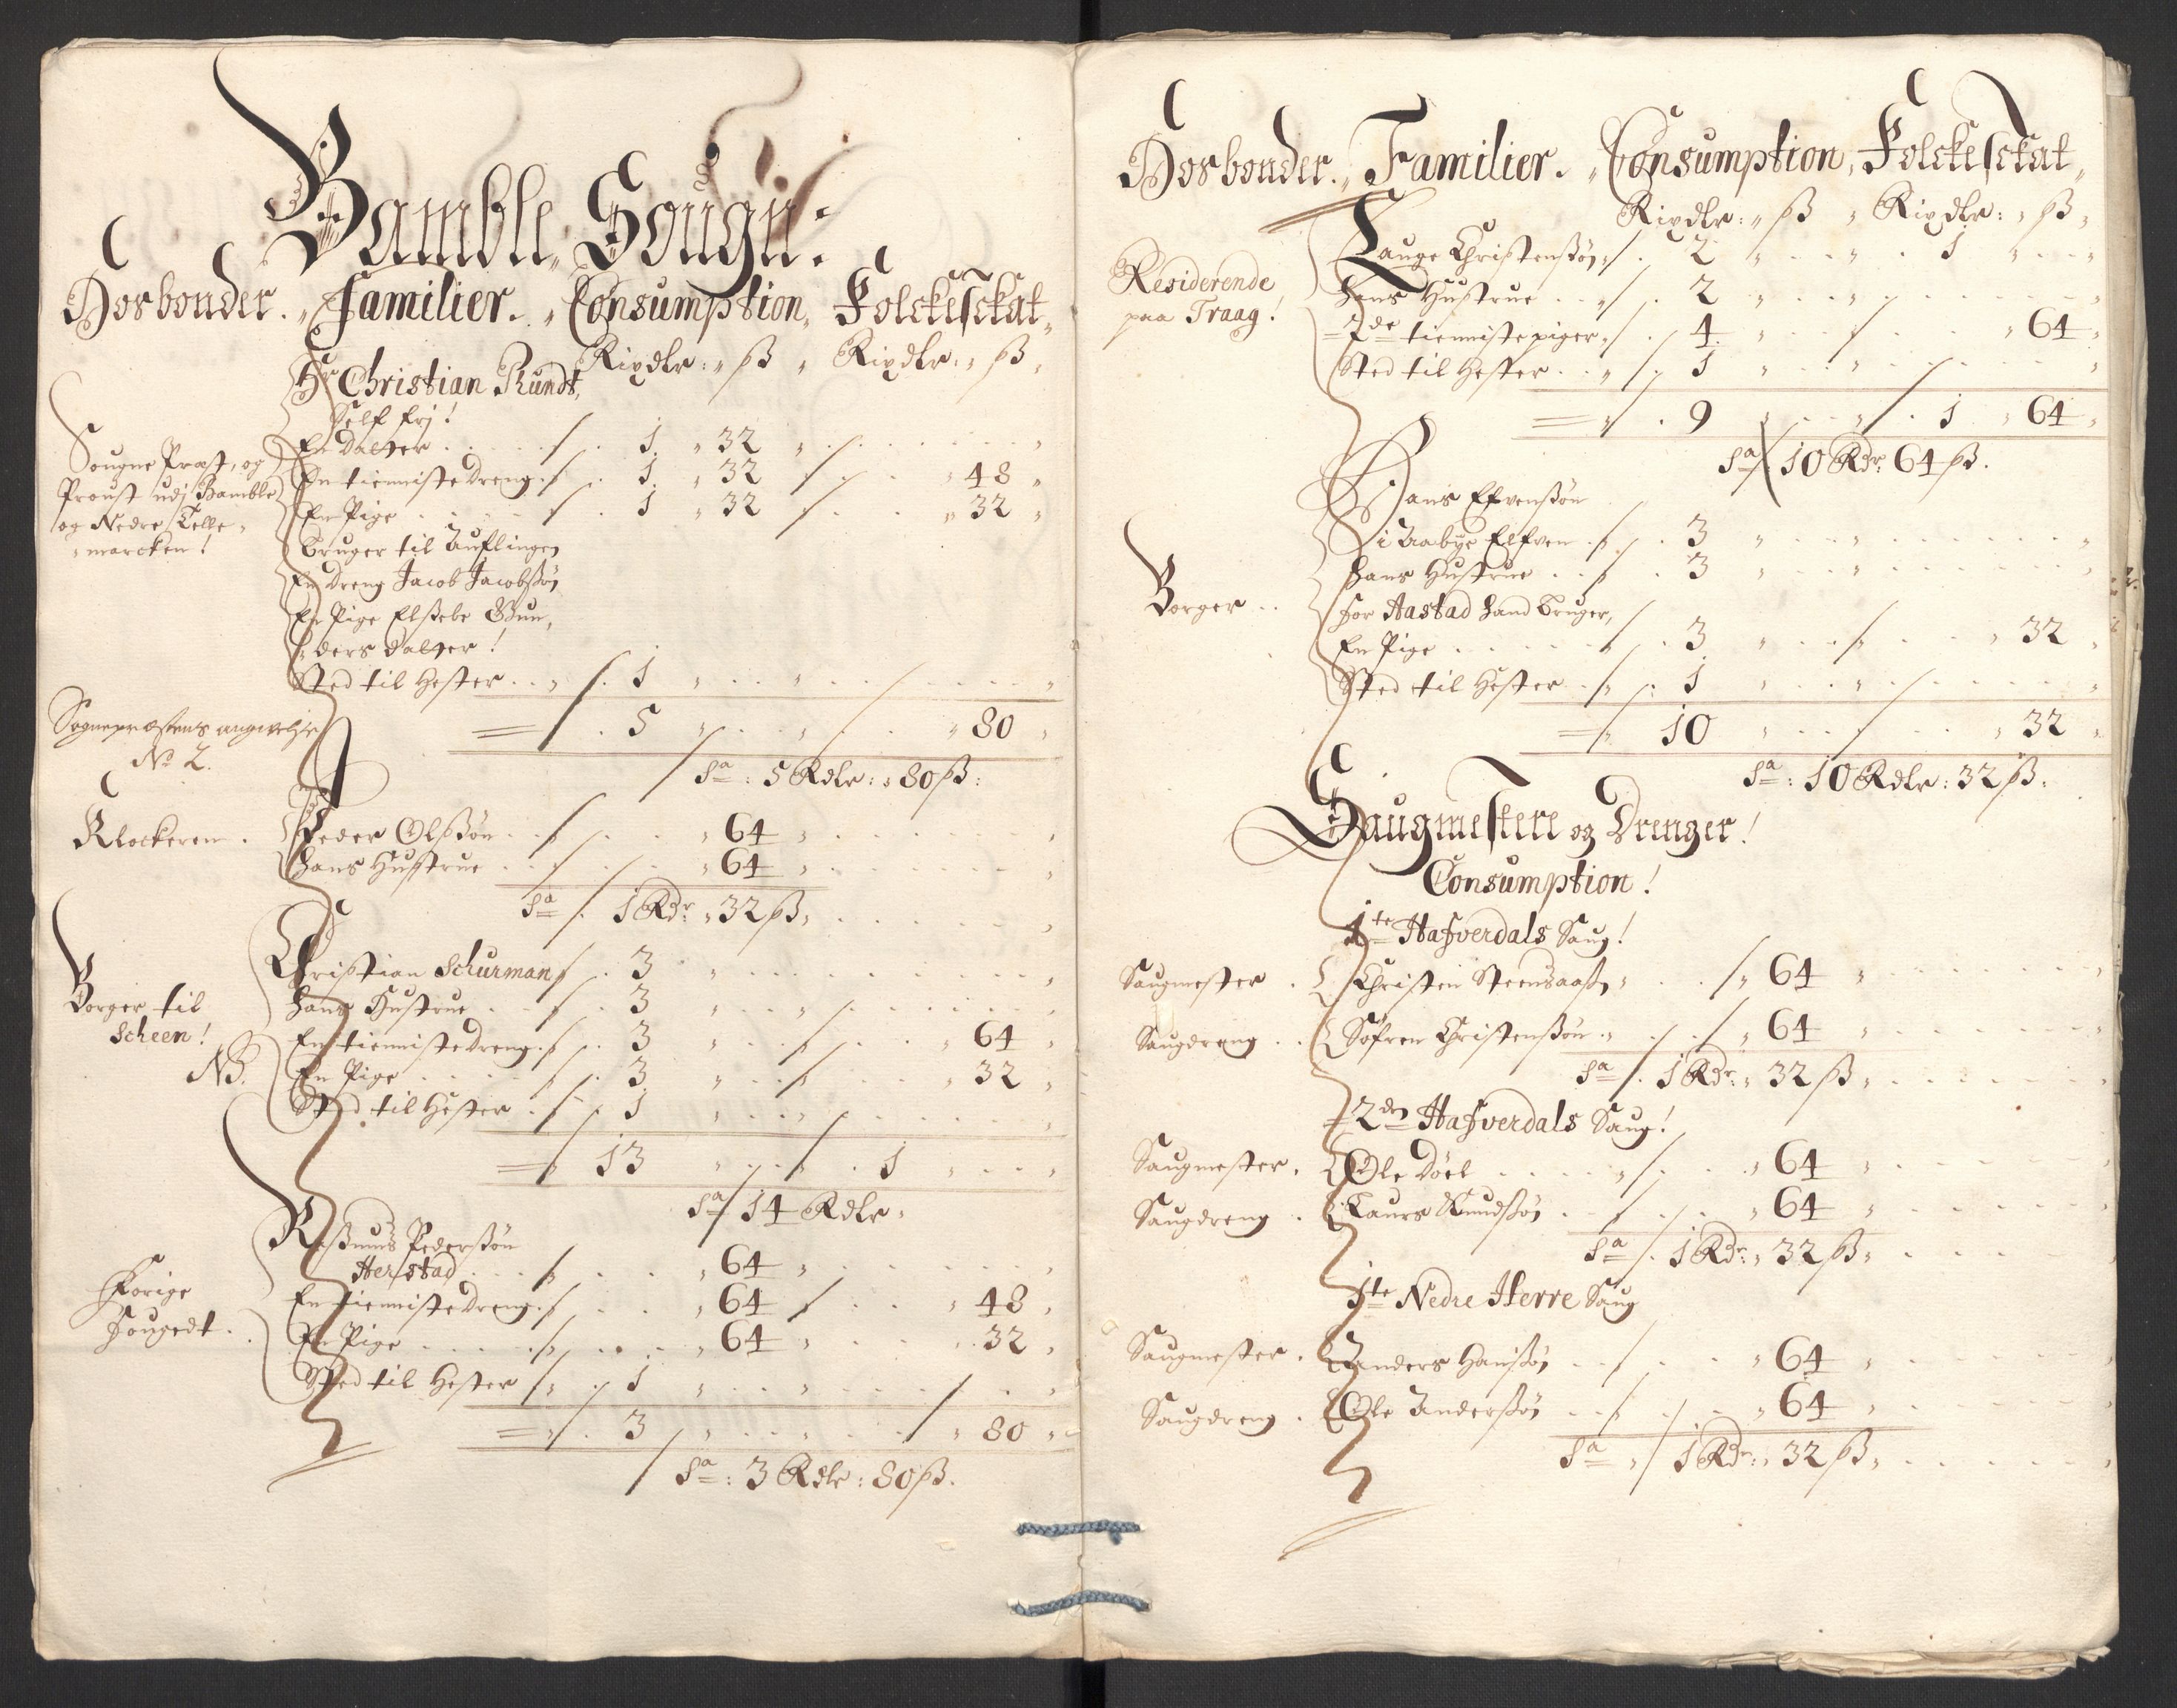 Bamble, Sougn:
Hosbonder. „ Familier. „ Consumption, Folckeschat„
Rixdlr: „ ß „ Rixdlr: „ ß „
Hr Christian Rundt,
Self frj!
Sougne Præst, og
Proust udj Bamble
og Nedre Telle-
marcken!
En Datter . . . 1. „ 32 „
En tienniste Dreng . . 1. „ 32 . . „ 48 „
En Pige . . 1 „ 32 . . „ 32 „
Bruger til Auflingen
En Dreng Jacob Jacobßøn
En Pige Elßebe Gun„
„ders Datter!
Sted til Hester . . „ 1 „ . . „
Sognepræstens angivelse
No 2.
= . 5 „ . . „ 80 „
Sa: 5 Rdlr: „ 80 ß:
Klockeren .
Peder Olßøn . . „ 64 „
Hans Hustrue . . „ 64 „
Sa . 1 Rdr „ 32 ß „
Borger til
Scheen!
NB.
Christian Schurman . 3 „
Hans Hustrue . . 3 „
En tienniste Dreng . . 3 „ . . „ 64 „
En Pige . . 3 „ . . „ 32 „
Sted til Hester . . 1 „
= „ 13 „ . . 1 „
Sa 14 Rdlr„
Forige
Fougedt .
Raßmus Pederßøn
Herstad . . „ 64 „
En tienniste Dreng . . „ 64 . „ 48 „
En Pige . . . „ 64 „ . 32 „
Sted til Hester „ . 1 „
= „ . 3 „ . . „ 80 „
Sa: 3 Rdlr: 80 ß.
Hosbonder. „ Familier. „ Consumption, Folckeschat„
Rixdlr: „ ß „ Rixdlr: „ ß „
Residerende
paa Traag!
Lauge Christenßøn . 2 „ . . „ . 1 „
Hans Hustrue . . 2 „
2de tiennistepiger „ . 4 „ . . „ 64 „
Sted til Hester . . „ . 1 „
= „ . 9 „ . . 1 „ 64 „
Sa 10 Rdr: 64 ß.
Borger . .
Hans Efvenßøn
i Aabye Elfven . . 3 „
Hans Hustrue . . 3 „
for Aastad Hand Bruger,
En Pige . . . 3 „ . . „ 32 „
Sted til Hester . . 1 „
= „ 10 „ . . „ 32 „
Sa: 10 Rdlr: 32 ß.
Saugmestere og Drenger!
Consumption!
1te Hafverdals Saug!
Saugmester . Christen . . „ 64 „
Saugdreng . . Søfren Christenßøn . . „ 64 „
Sa . 1 Rdr: „ 32 ß „
2den Hafverdals Saug!
Saugmester . Ole Døel . . . „ 64 „
Saugdreng . Laurs Knudßøn . . „ 64 „
Sa . 1 Rdr: „ 32 ß „
1te Nedre Herre Saug
Saugmester . Anders Hanßøn . . „ 64 „
Saugdreng . Ole Anderßøn . . „ 64 „
Sa „ 1 Rdr: „ 32 ß „